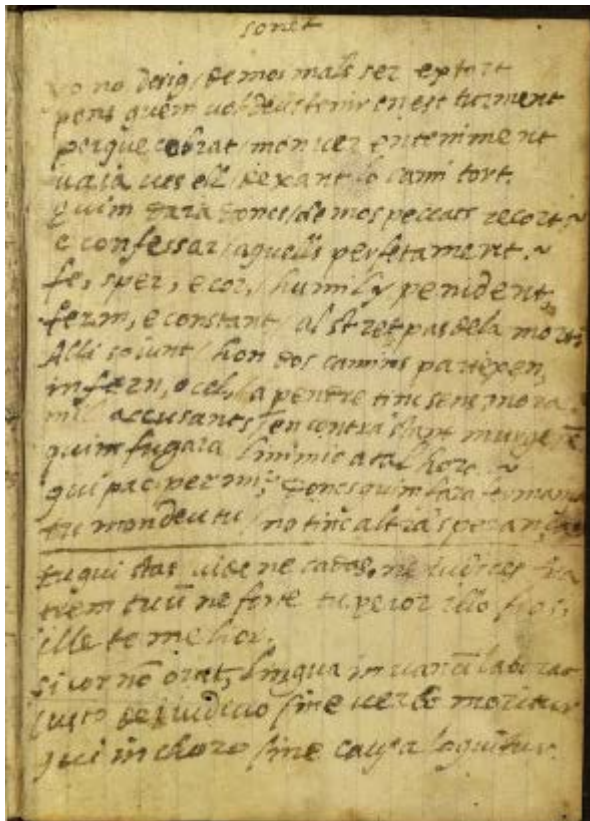 sonet
yo no desig / de mos mals ser export
pens quem vol deu tenir en est turment
perque cobrat / mon ver enteniment
vaja ves ell / dexant lo cami tort.
Quim dara doncs / de mos peccats recort ~
e confessar / aquells perfetament. ~
fe, sper, e cor, / humil y penident,
ferm, e constant / al stret pas de la mort
Alli so iunt / hon dos camins partexen,
infern, o cel, / a pendre tinc sens mora
mil accusants / en contra
quim fugara linimic a tal hora ~
qui par per mi; doncs quim dara
tu mon deu tu / no tinc altra speransa
tu qui stas vide ne cadas, ne iudices fra
trem tuū ne forte tu peior illo sis,
ille te melior.
si cor nō orat, lingua in vanū laborat
iusto dei iudicio sine verbo moritur
qui in choro sine causa loquitur.